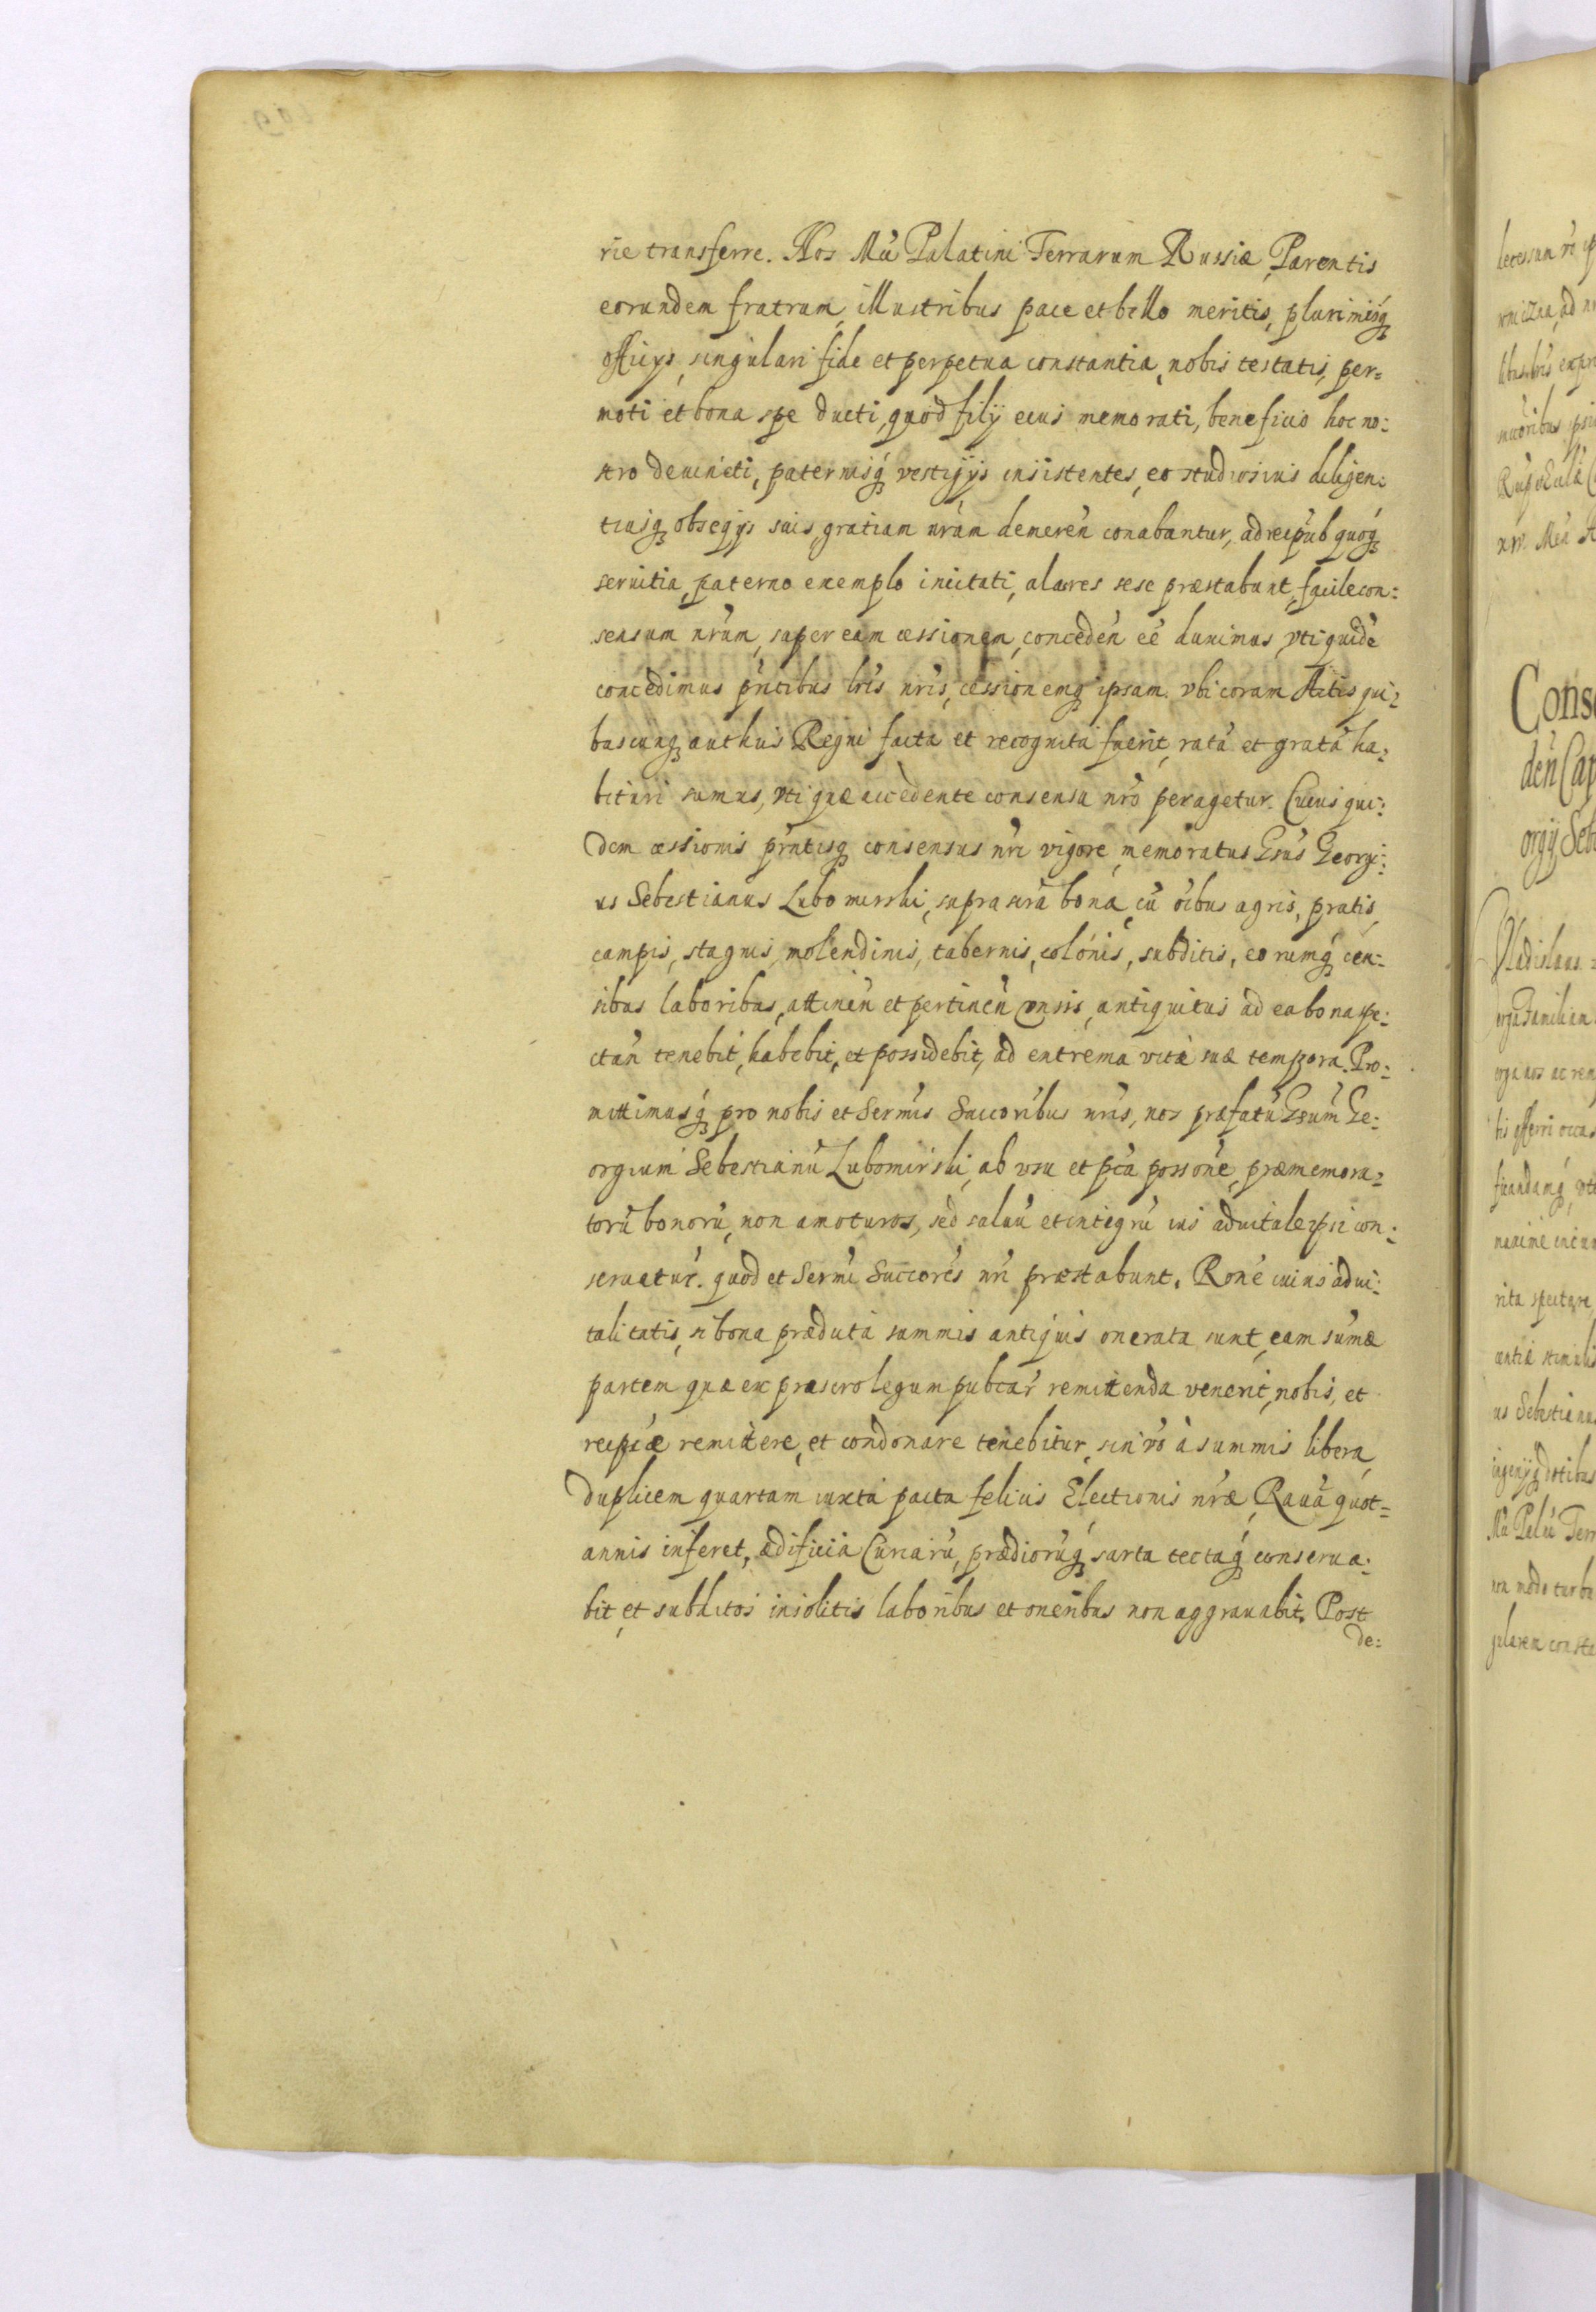 rie transferre. Nos Mci Palatini Terrarum Russiæ, Parentis
eorundem fratrum, illustribus pace et bello meritis, plurimisq́
officys, singulari fide et perpetua constantia, nobis testatis, per=
moti et bona spe ducti, quòd filij eius memorati, beneficio hoc no:
stro deuincti, paternisq́ vestigijs insistentes, eo studiosius diligen:
tiusq́ obseqys suis, gratiam nr̃am demereñ conabantur, ad reipub quoq́
seruitia, paterno exemplo incitati, alacres sese præstabunt, facile con:
sensum nr̃um, super eam cessionem, concedeñ eẽ duximus, vti quidẽ
concedimus pñtibus lr̃is nr̃is, cessionemq́ ipsam. vbi coram Actis qui:
buscunq́ authcis Regni facta et recognita fuerit, ratã et gratã ha:
bituri sumus, vti quæ accedente consensu nr̃o peragetur. Cuius qui:
dem cessionis pñtisq́ consensus nr̃i vigore, memoratus Gsus Georgi:
us Sebestianus Lubomirski, suprascrã bona, cũ oĩbus agris, pratis,
campis, stagnis, molendinis, tabernis, colonis, subditis, eorumq́ cen:
sibus laboribus, attineñ et pertineñ vnsis, antiquitus ad ea bona spe:
ctañ tenebit, habebit, et possidebit, ad extrema vitæ suæ tempora. Pro:
mittimusq́ pro nobis et Sermis Succoribus nr̃is, nos præfatũ Gsum Ge:
orgium Sebestianũ Lubomirski, ab vsu et pca possone, præmemora:
torũ bonorũ, non amoturos, sed saluũ et integrũ ius aduitale ipsi con:
seruatur. quod et Sermi Succores nr̃i præstabunt. Rone cuius adui:
talitatis, si bona præducta summis antiquis onerata sunt, eam sumæ
partem quæ ex præscro legum pubcar remittenda venerit, nobis, et
reipcæ remittere, et condonare tenebitur, sin vo à summis libera,
duplicem quartam iuxta pacta felicis Electionis nr̃æ, Rauã quot=
annis inferet, ædificia Curiarũ, prædiorũq́ sarta tectaq́ conserua:
bit, et subditos insolitis laboribus et oneribus non aggrauabit. Post
de: